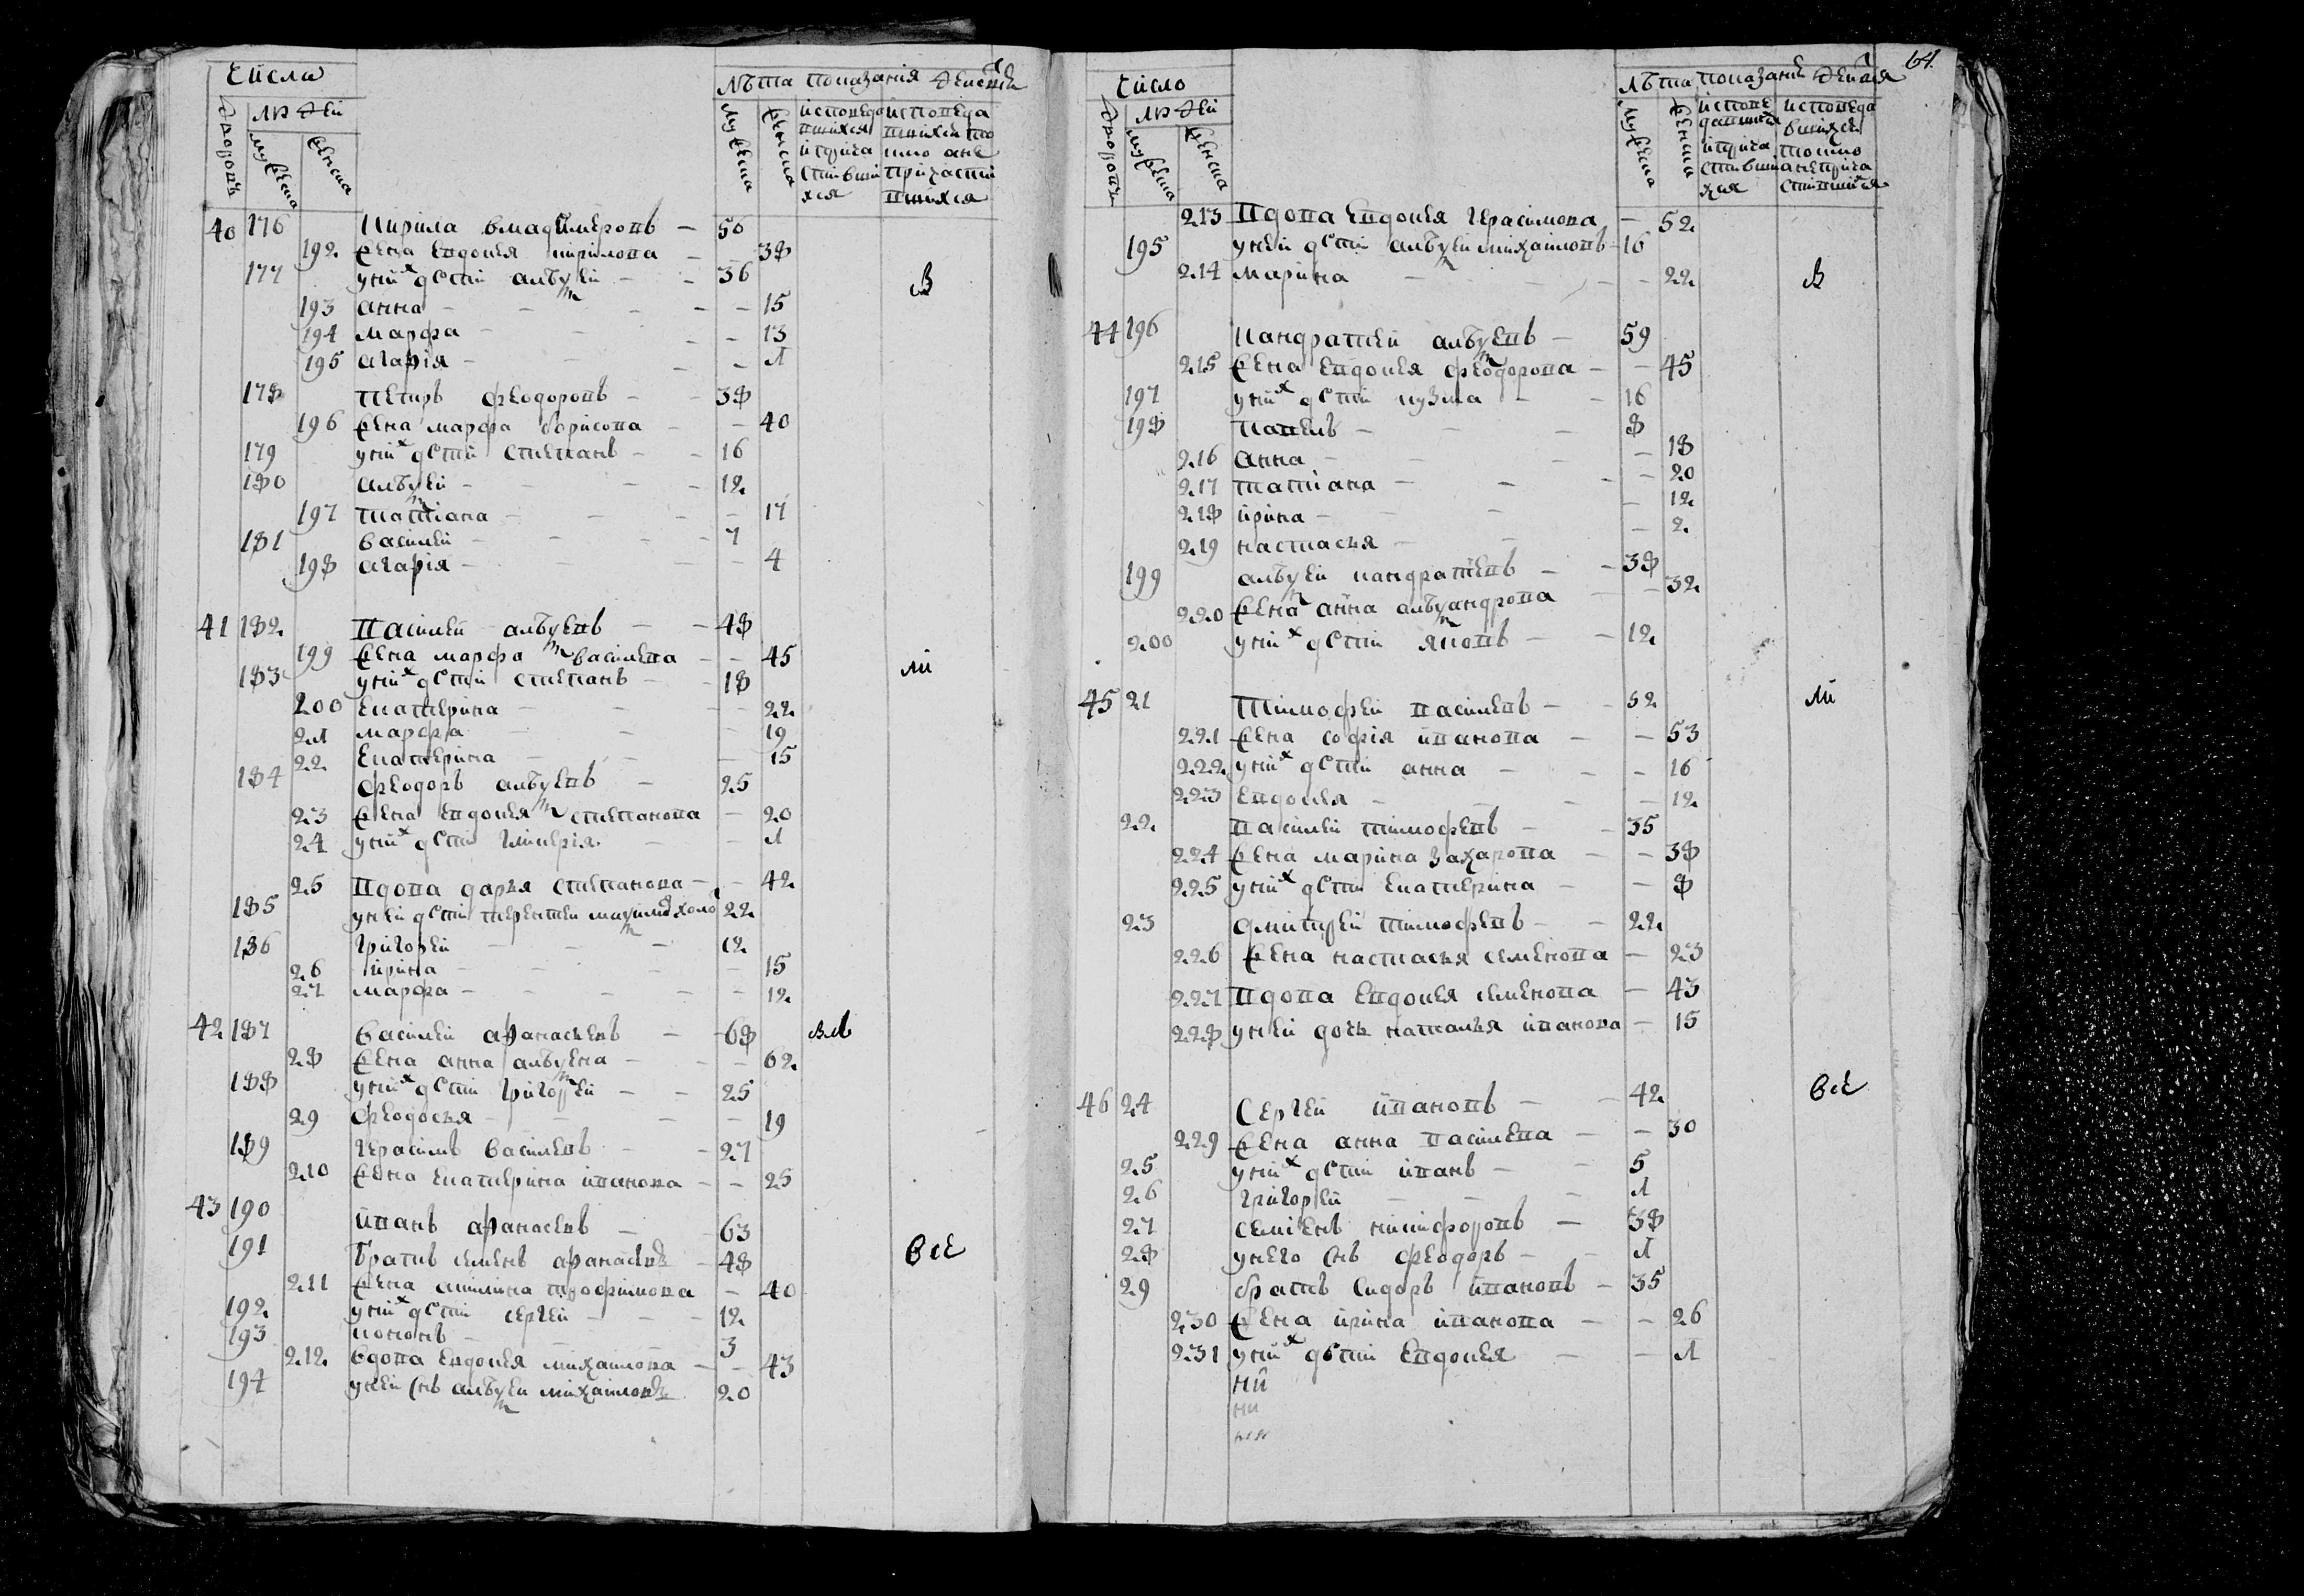 Число
Лѣта показанія деистви
Дворовъ
людей
мужеска
женска
мужеска
женска
исповеда
вшихся
и прича
стивши
хся
исповеда
вшихся то
лко а не
причасти
вшихся
40 176 Кирила владимеровъ — 56
192 жена евдокея кирилова — — 38
177 у них дѣти алѣѯей — — 36 в
193 анна — — — 15
194 марфа — — — 13
195 агафія — — — 1
178 петръ феодоровъ — — 38
196 жена марфа борисова — — 40
179 у них дѣти степанъ — — 16
180 алѣѯей — — — 12
197 татіана — — — 17
181 василей — — — 7
198 агафія — — — 4
41 182 василей алѣѯевъ — — 48
199 жена марфа василева — — 45 ли
183 у них дѣти степанъ — — 18
200 екатерина — — — 22
21 марфа — — — 19
22 екатерина — — — 15
184 феодоръ алѣѯевъ — 25
23 жена евдокея степанова — 20
24 у них дѣти гликерія — — 1
25 вдова дарья степанова — — 42
185 у неи дѣти терентеи 22
186 григорей — — — 12
26 ирина — — — 15
27 марфа — — — 12
42 187 василей афанасьевъ — 68
28 жена анна алѣѯеева — — 62
188 у них дѣти григорей — — 25
29 феодосья — — — 19
189 герасимъ василевъ — — 27
210 жена екатерина иванова — — 25
43 190 иванъ афанасевъ — 63
191 братъ семенъ афанасевъ — 48 все
211 жена акилина трофимова — 40
192 у них дѣти сергей — — 12
193 кононъ — — 3
212 вдова евдокея михаилова — — 43
194 у неи снъ алѣѯеи михаиловъ 20
64
Число
Лѣта показание деиствия
Дворовъ
людей
мужеска
женска
мужеска
женска
исповѣ
давшихся
и прича
стивши
хся
исповеда
вшихся
толко
а не прича
стившихся
213 вдова евдокея герасимова — 52
195 у ней дѣти алѣѯей михаиловъ — 16
214 марина — — — 22 в
44 196 кандратей алѣѯевъ — 59
215 жена евдокея феодорова — — 45
197 у них дѣти кузма — — 16
198 павелъ — — — 8
216 анна — — — 18
217 татіана — — — 20
218 ирина — — — 12
219 настасья — — 2
199 алѣѯей кандратевъ — — 38
220 жена анна алѣѯандрова — — 32
200 у них дѣти яковъ — — 12
45 21 тимофей василевъ — — 52 ли
221 жена софія иванова — — 53
222 у них дѣти анна — — — 16
223 евдокея — — — 12
22 василей тимофеевъ — — 35
224 жена марина захарова — — 38
225 у них дѣти екатерина — — 8
23 дмитрей тимофеевъ — — 22
226 жена настасья семенова — 23
227 вдова евдокея семенова — 43
228 у ней дочь наталья иванова — 15
46 24 сергей ивановъ — — 42 все
229 жена анна василева — — 30
25 у них дѣти иванъ — — 5
26 григорей — — — 1
27 семіенъ никифоровъ — 38
28 у него снъ феодоръ — — 1
29 братъ сидоръ ивановъ — 35
230 жена ирина иванова — — 26
231 у них дѣти евдокея — — 1
ни
ни